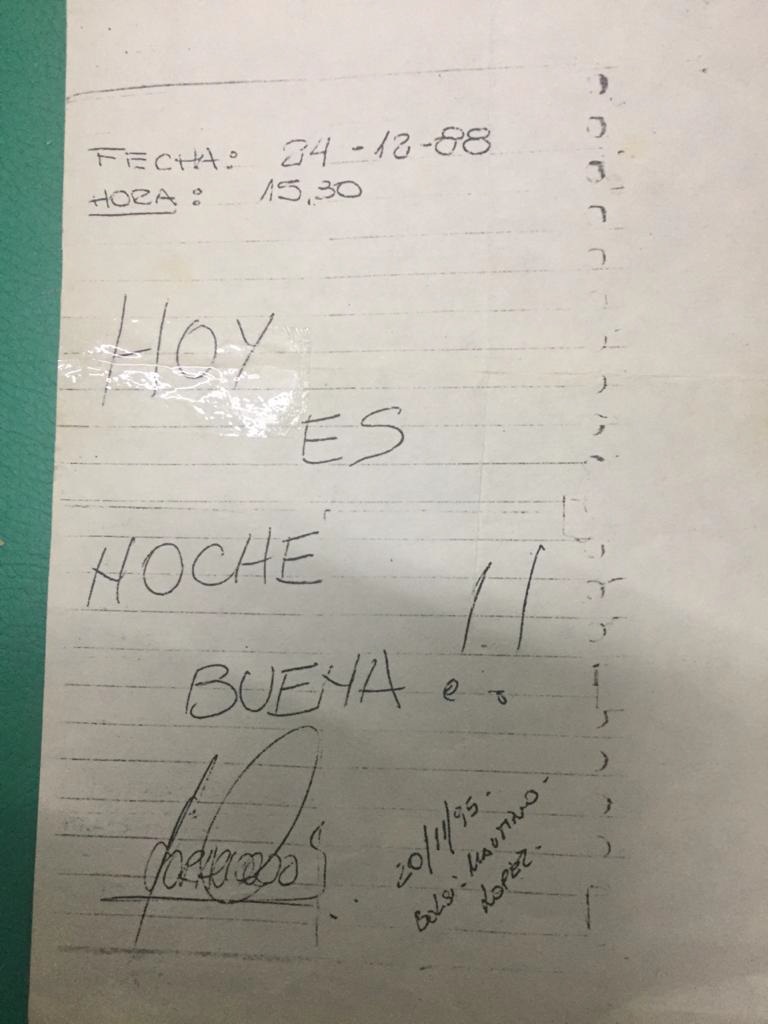 FECHA: 24-12-88
HORA: 15,30
HOY
ES
NOCHE
BUENA !!
20/11/95.
LOPEZ.